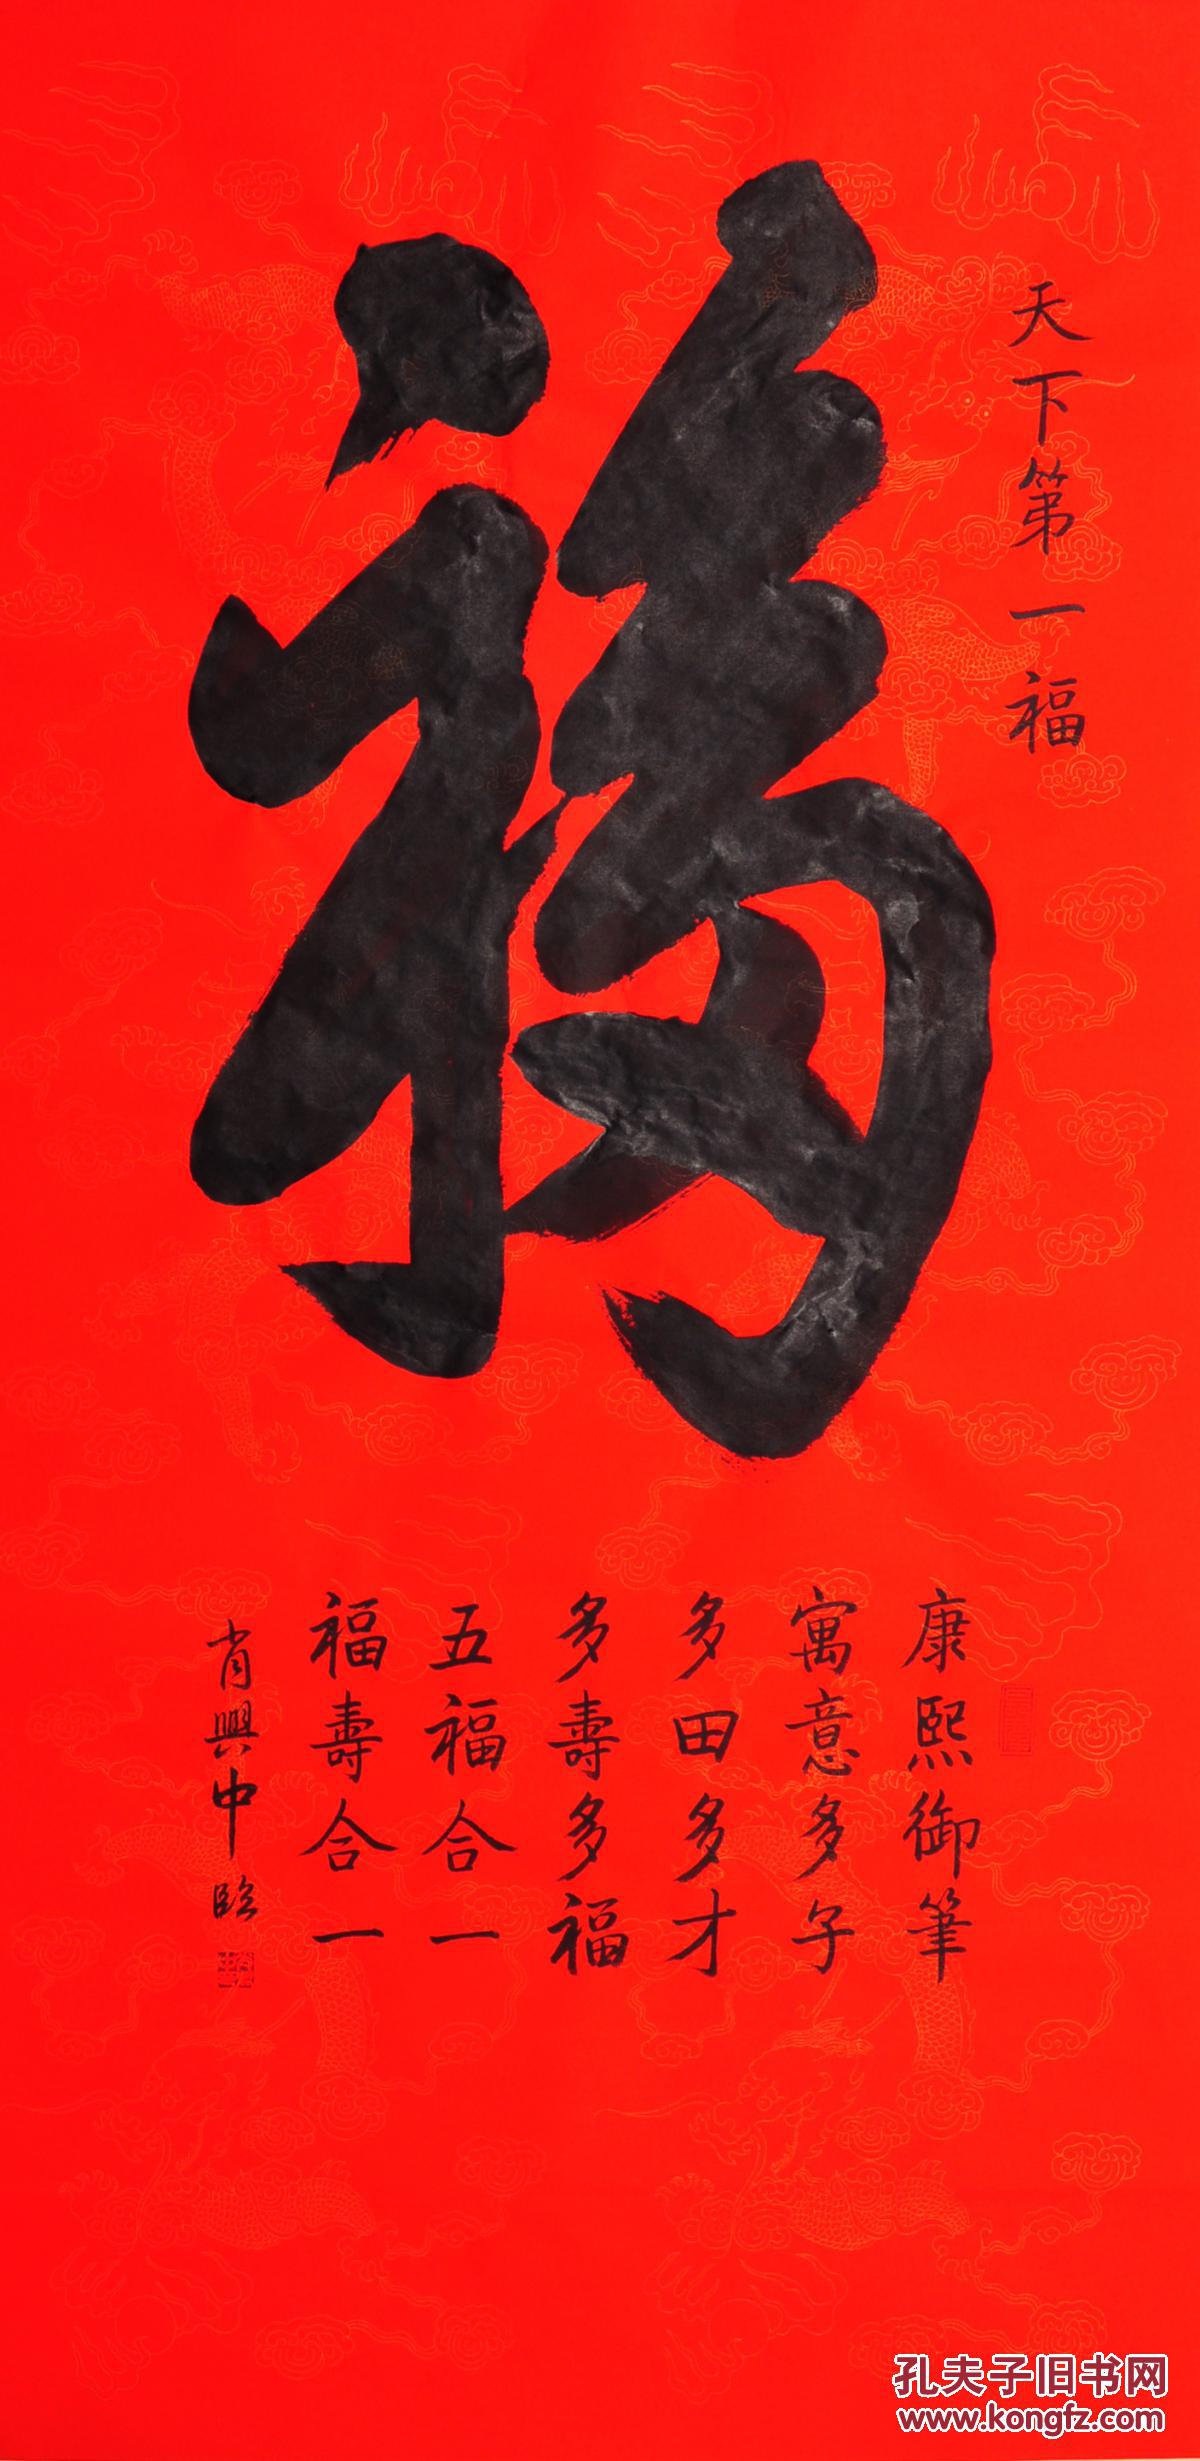 福
天下第一福
康熙御筆
寓意多子
多田多才
多壽多福
五福合一
福壽合一
肖興中臨
孔夫子旧书网
www.kongfz.com